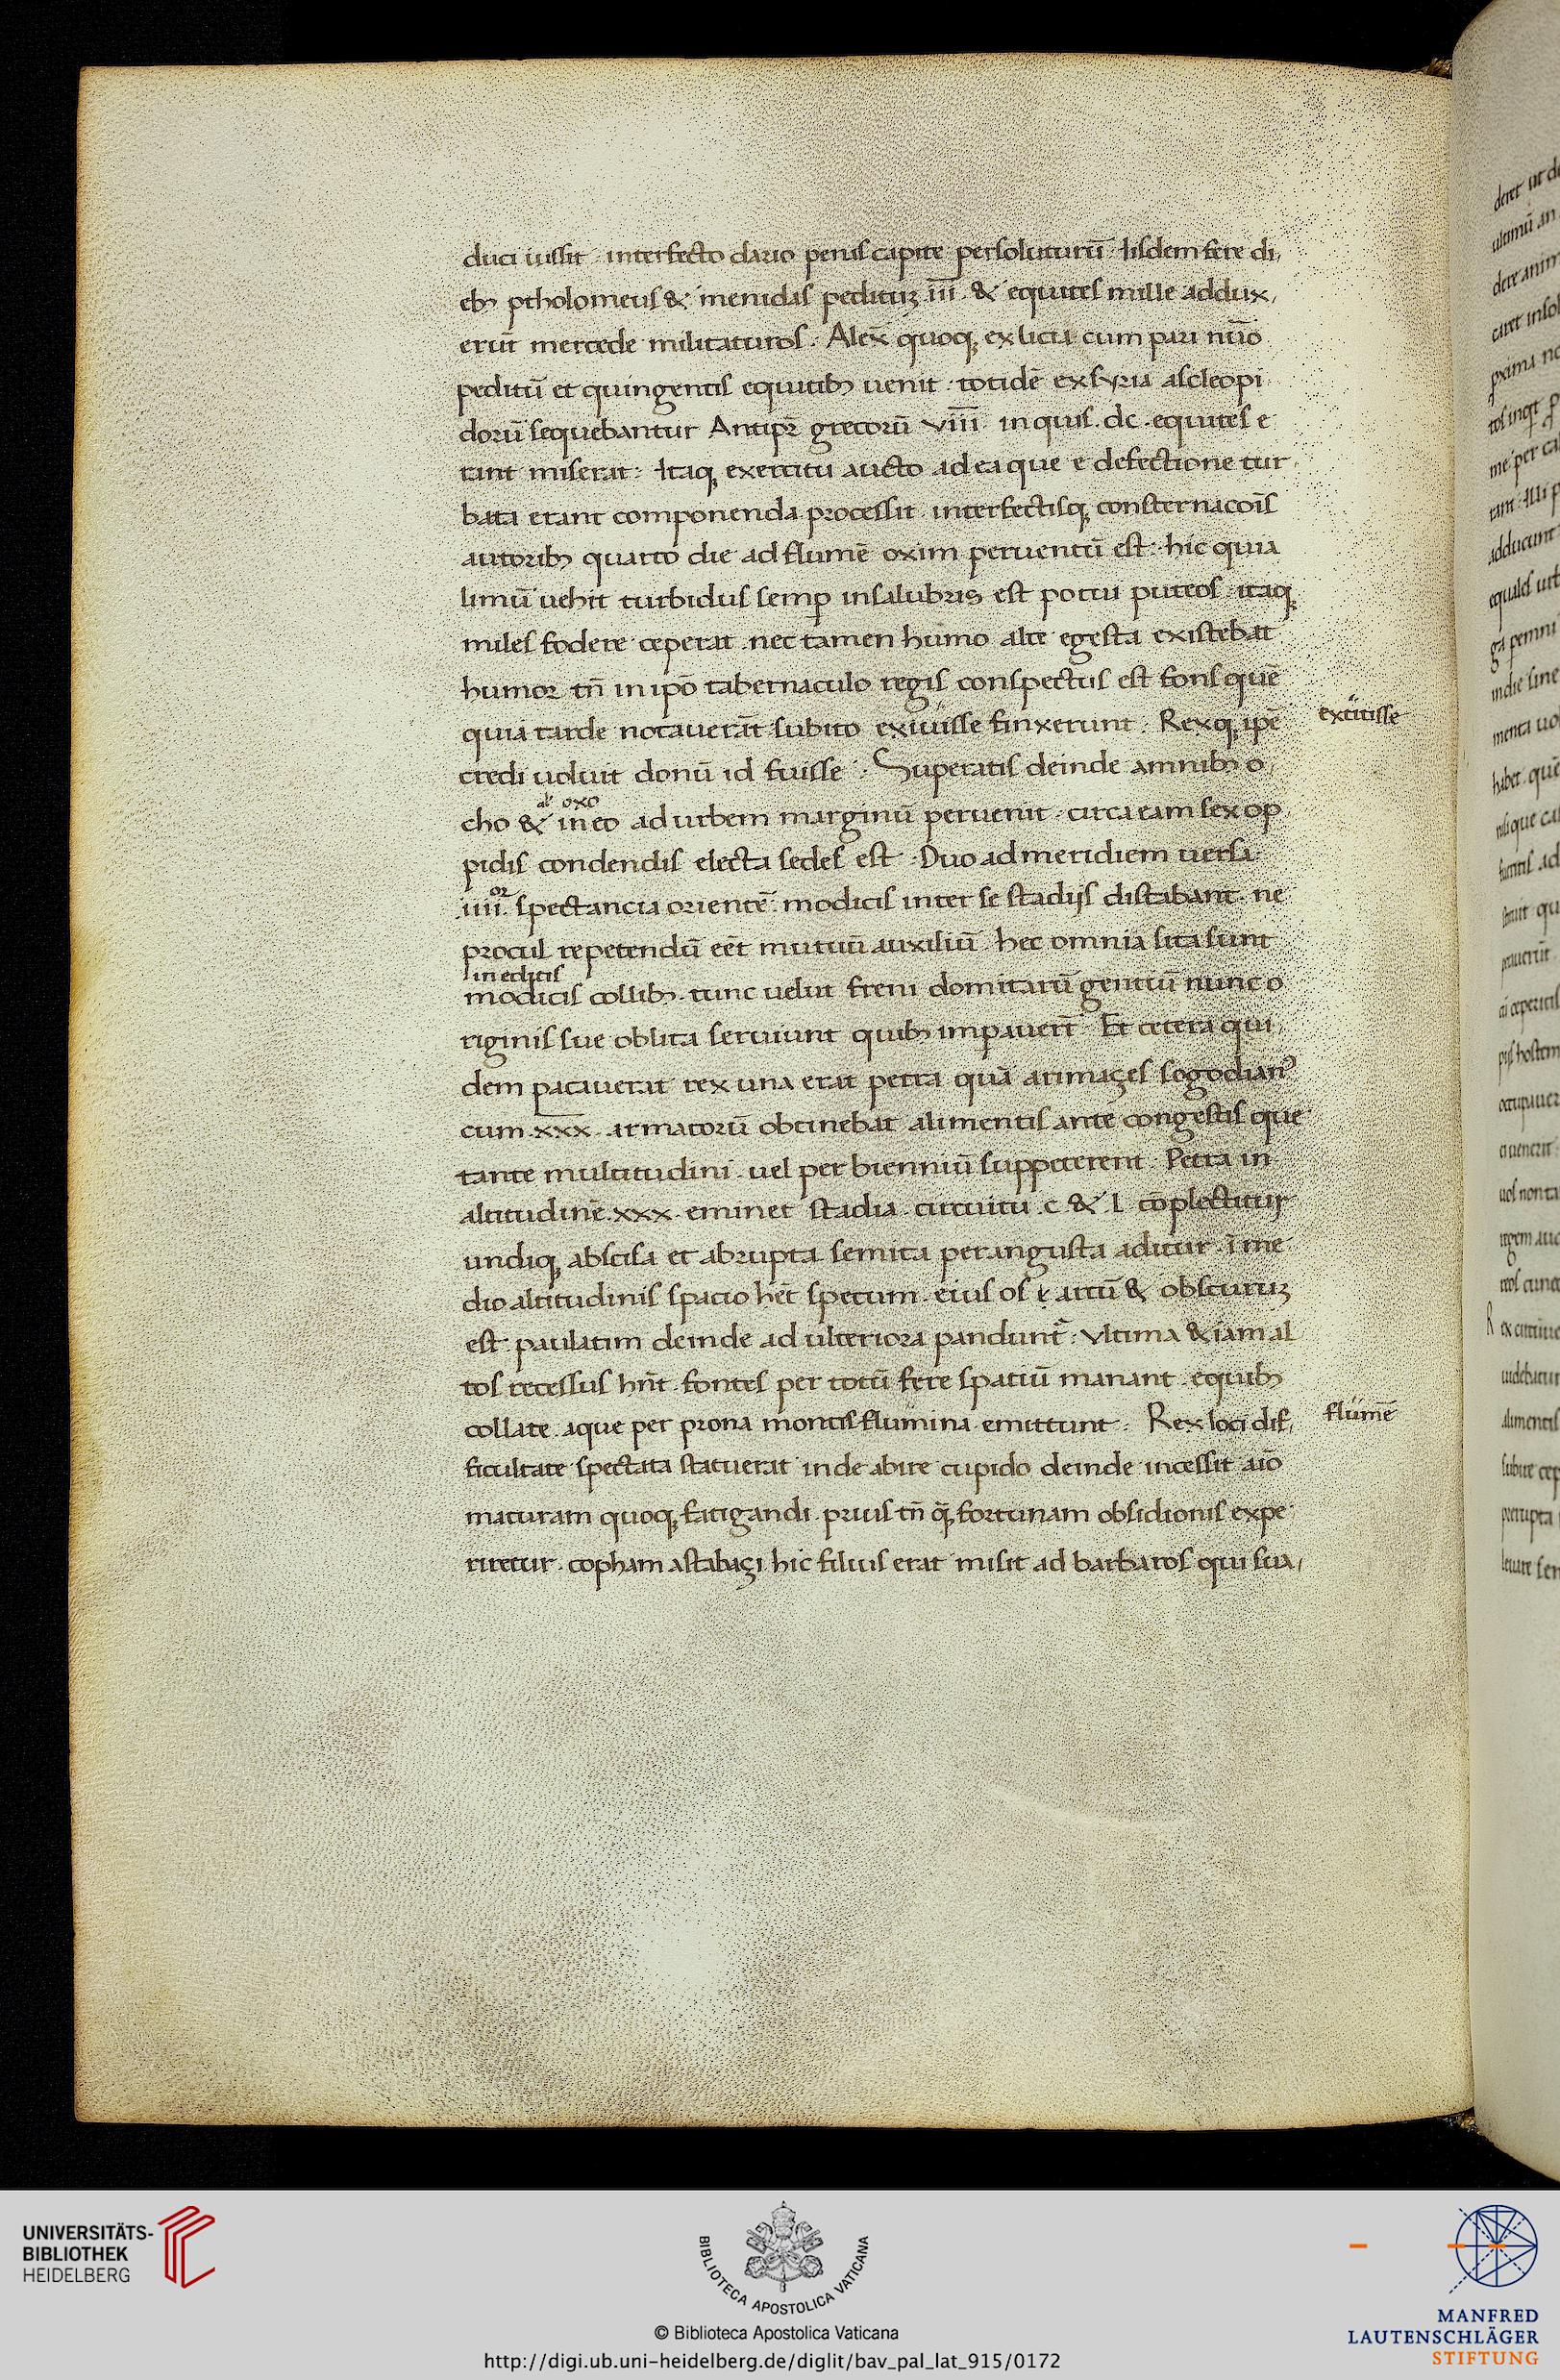 duci iussit . interfecto dario penis capite persoluturū . Iisdem fere di,
ebꝫ ptholomeus & menidas peditūꝫ .iii. & equites mille addux,
erūt mercede militaturos . Alex̄ quoqꝫ ex licia cum pari nūo
peditū et quingentis equitibꝫ uenit . totidē ex syria ascleopi
dorū sequebantur Antipr̄ grecorū viii̅ . in quis .dc. equites e
rant miserat : Itaqꝫ exercitu aucto ad ea que e defectione tur
bata erant componenda processit . interfectisqꝫ consternacōis
autoribꝫ quarto die ad flumē oxim peruentū est : hic quia
limū uehit turbidus semꝑ insalubris est potui puteos . itaqꝫ
miles fodere ceperat . nec tamen humo alte egesta existebat
humor tn̄ in ipō tabernaculo regis conspectus est fons quē
quia tarde notauerāt subito exiuisse finxerunt . Rexqꝫ ipē
extitisse
credi uoluit donū id fuisse . Superatis deinde amnibꝫ o,
al' oxo
cho & in eo ad urbem marginū peruenit . circa eam sex op
pidis condendis electa sedes est . Duo ad meridiem uersa .
.iiii.or spectancia orientē . modicis inter se stadijs distabant . ne
procul repetendū eēt mutuū auxiliū . hec omnia sita sunt
in editis
modicis collibꝫ . tunc uelut freni domitarū gentiū nunc o
riginis sue oblita seruiunt quibꝫ imꝑauert̄ . Et cetera qui
dem pacauerat rex una erat petra quā arimaçes sogodian᾽
cum .xxx̅. armatorū obtinebat alimentis ante congestis que
tante multitudini . uel per bienniū suppeterent . Petra in
altitudinē .xxx. eminet stadia . circuitu .c. & .l. cōplectitur
undiqꝫ abscisa et abrupta semita perangusta aditur . ī me
dio altitudinis spacio hēt specum . eius os ę artū & obscurūꝫ
est . paulatim deinde ad ulteriora pandunt᾽ . Vltima & iam al
tos recessus hn̄t . fontes per totū fere spatiū manant . equibꝫ
collate aque per prona montis flumina emittunt . Rex loci dif,
flumē
ficultate spectata statuerat inde abire cupido deinde incessit aīo
maturam quoqꝫ fatigandi . prius tn̄ q̄ꝫ fortunam obsidionis expe
riretur . copham astabaçi hic filius erat misit ad barbaros qui sua,
UNIVERSITÄTS-
BIBLIOTHEK
HEIDELBERG
BIBLIOTECA APOSTOLICA VATICANA
© Biblioteca Apostolica Vaticana
http://digi.ub.uni-heidelberg.de/diglit/bav_pal_lat_915/0172
MANFRED
LAUTENSCHLÄGER
STIFTUNG